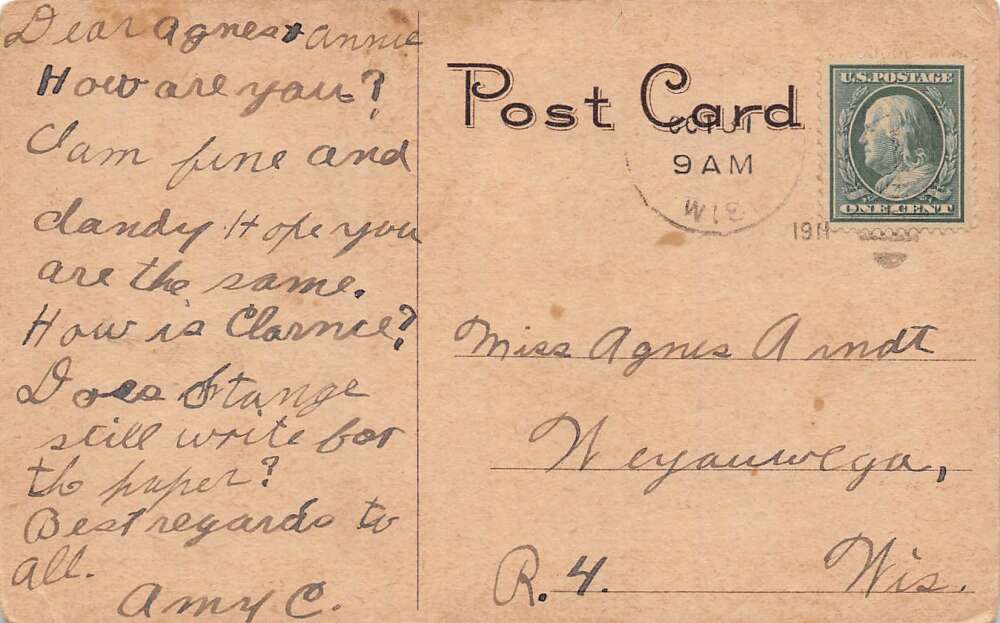 Dear Agnes & Annie
How are you?
I am fine and
dandy Hope you
are the same.
How is Clarnce?
Does Stange
still write for
the paper?
Best regards to
all.
Amy C.
Post Card
9 AM
WIS
1911
U.S. POSTAGE
ONE CENT
Miss Agnes Arndt
Weyauwega,
R. 4. Wis.